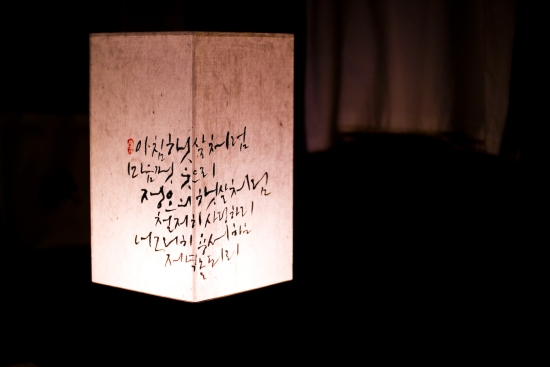 아침햇살처럼
마음껏 웃으리
정오의 햇살처럼
철저히 사랑하리
너그러히 용서하는
저녁놀되리